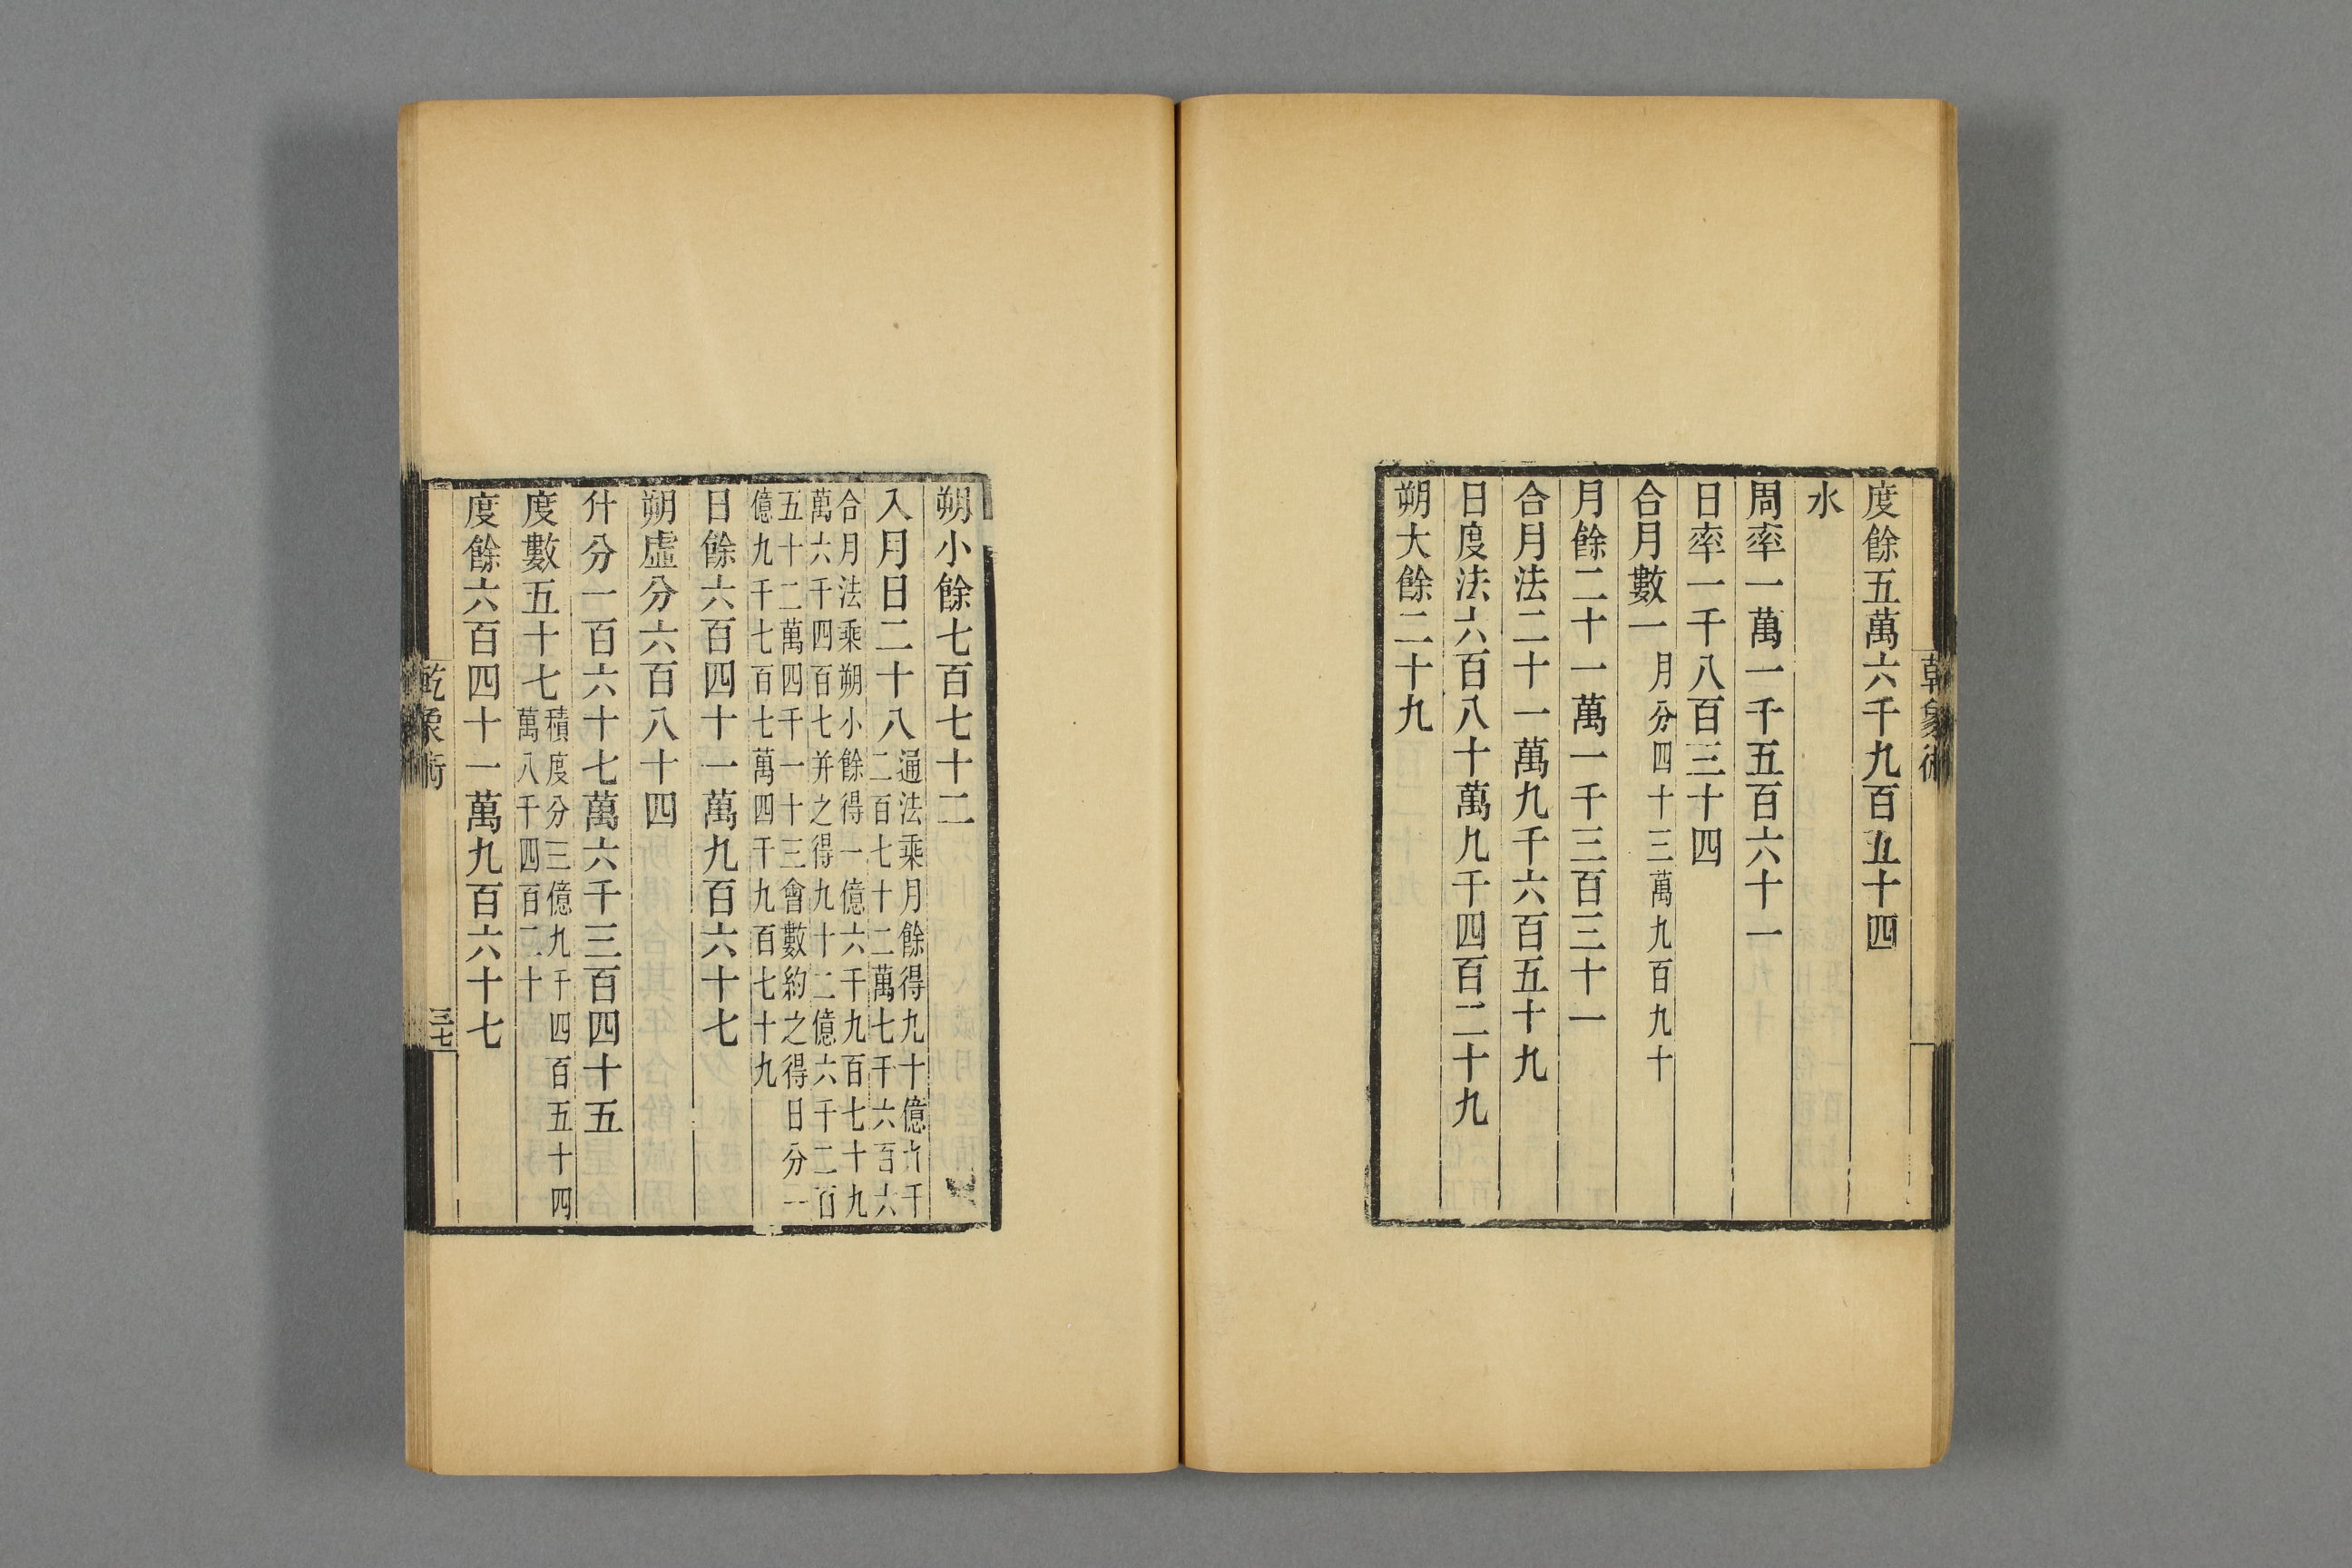 乾象術
度餘五萬六千九百五十四
水
周率一萬一千五百六十一
日率一千八百三十四
合月數一月分四十三萬九百九十
月餘二十一萬一千三百三十一
合月法二十一萬九千六百五十九
日度法六百八十萬九千四百二十九
朔大餘二十九
朔小餘七百七十二
入月日二十八
通法乘月餘得九十億千
二百七十二萬七千六百六
合月法乘朔小餘得一億六千九百七十九
萬六千四百七并之得九十二億六千二百
五十二萬四千一十三會數約之得日分一
億九千七百七萬四千九百七十九
日餘六百四十一萬九百六十七
朔虛分六百八十四
什分一百六十七萬六千三百四十五
度數五十七
積度分三億九千四百五十四
萬八千四百二十
度餘六百四十一萬九百六十七
乾象術
三七